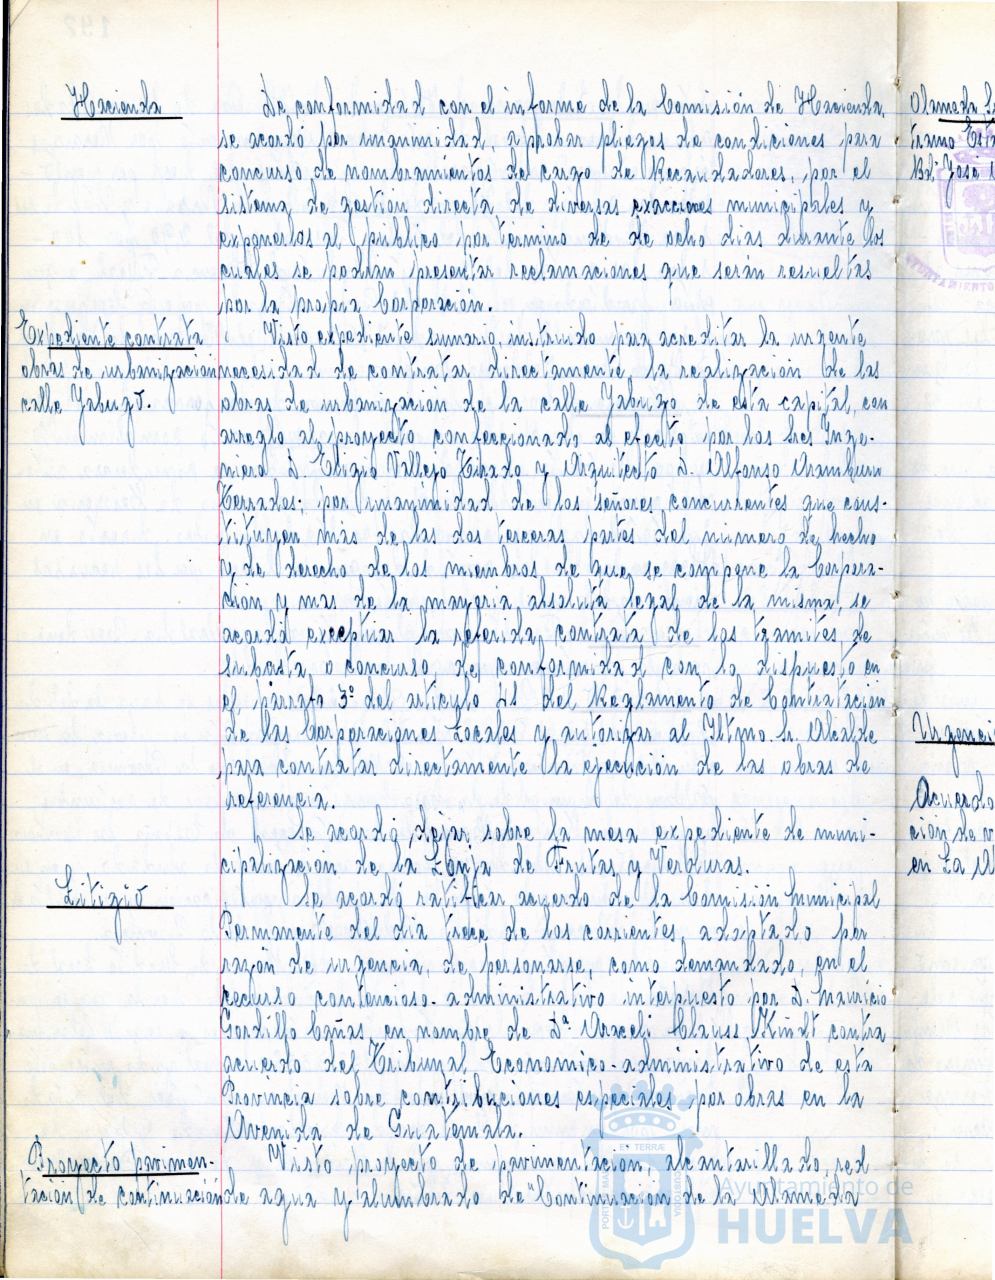 Hacienda
De conformidad con el informe de la Comisión de Hacienda,
se acordó por unanimidad, aprobar pliegos de condiciones para
concurso de nombramientos de cargo de Recaudadores, por el
sistema de gestión directa de diversas exacciones municipales y
exponerlos al público por termino de de ocho dias durante los
cuales se podrán presentar reclamaciones que serán resueltas
por la propia Corporación.
Expediente contrata
obras de urbanizacion
calle Jabugo.
Visto expediente sumario, instruido para acreditar la urgente
necesidad de contratar directamente la realización de las
obras de urbanización de la calle Jabugo de esta capital, con
arreglo al proyecto confeccionado al efecto por los Sres Inge-
niero D. Eligio Vallejo Tirado y Arquitecto D. Alfonso Aramburu
Terrades; por unanimidad de los señores concurrentes que cons-
tituyen más de las dos terceras partes del número de hecho
y de derecho de los miembros de que se compone la Corpora-
ción y mas de la mayoria absoluta legal de la misma, se
acordó exceptuar la referida contrata de los tramites de
subasta o concurso, de conformidad con lo dispuesto en
el párrafo 3º del articulo 41 del Reglamento de Contratación
de las Corporaciones Locales y autorizar al Iltmo. Sr. Alcalde
para contratar directamente la ejecución de las obras de
referencia.
Se acordó dejar sobre la mesa expediente de muni-
cipalización de la Lonja de Frutas y Verduras.
Litigio
Se acordó ratificar acuerdo de la Comisión Municipal
Permanente del dia trece de los corrientes, adoptado por
razón de urgencia, de personarse, como demandado, en el
recurso contencioso-administrativo interpuesto por D. Mauricio
Gordillo Cañas, en nombre de Dª Araceli Clauss Kindt contra
acuerdo del Tribunal Económico-administrativo de esta
Provincia sobre contribuciones especiales por obras en la
Avenida de Guatemala.
Proyecto pavimen-
tación de continuación
Visto proyecto de pavimentación, alcantarillado, red
de agua y alumbrado de "Continuacion de la Alameda
Alameda
tramo
Bd. José
Urgenci
Acuerdo
cion de
en La
Ayuntamiento de
HUELVA